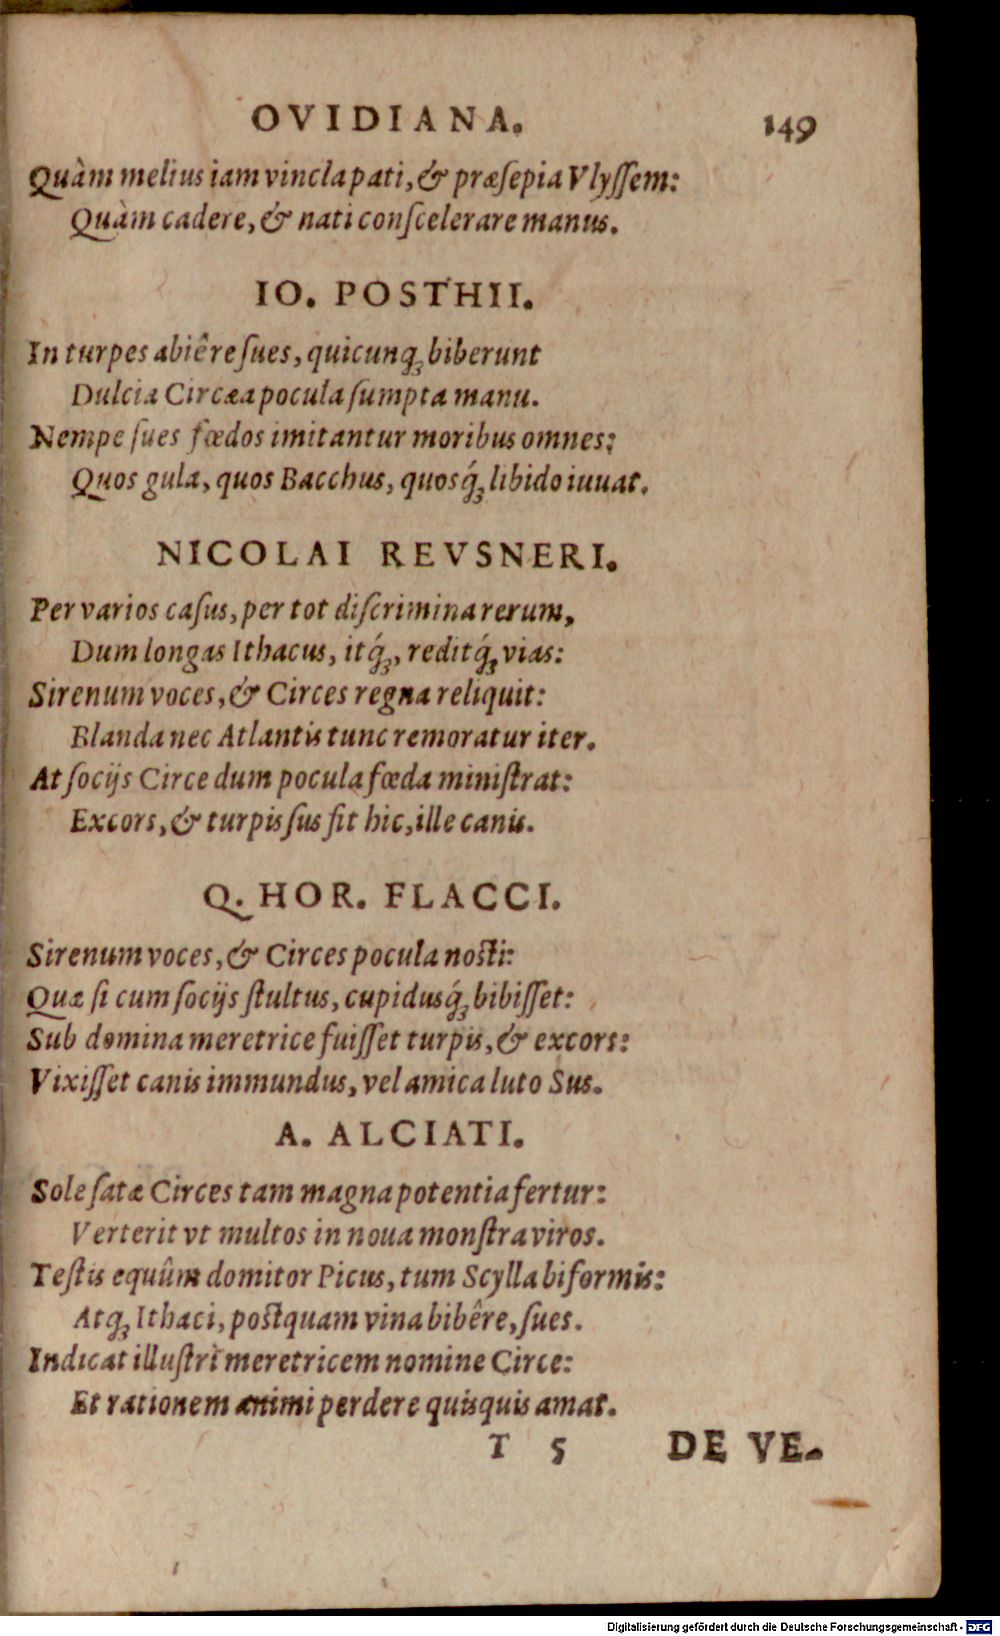 OVIDIANA. 149
Quàm melius iam vincla pati, & præſepia Vlyſſem:
Quàm cadere, & nati conſcelerare manus.
IO. POSTHII.
In turpes abiêre ſues, quicunq́ꝫ biberunt
Dulcia Circæa pocula ſumpta manu.
Nempe ſues fœdos imitantur moribus omnes;
Quos gula, quos Bacchus, quosq́ꝫ libido iuuat.
NICOLAI REVSNERI.
Per varios caſus, per tot diſcrimina rerum,
Dum longas Ithacus, itq́ꝫ, reditq́ꝫ vias:
Sirenum voces, & Circes regna reliquit:
Blanda nec Atlantis tunc remoratur iter.
At ſocijs Circe dum pocula fœda miniſtrat:
Excors, & turpis ſus fit hic, ille canis.
Q. HOR. FLACCI.
Sirenum voces, & Circes pocula noſti:
Quæ ſi cum ſocijs ſtultus, cupidusq́ꝫ bibiſſet:
Sub domina meretrice fuiſſet turpis, & excors:
Vixiſſet canis immundus, vel amica luto Sus.
A. ALCIATI.
Sole ſatæ Circes tam magna potentia fertur:
Verterit vt multos in noua monſtra viros.
Teſtis equûm domitor Picus, tum Scylla biformis:
Atqꝫ Ithaci, poſtquam vina bibêre, ſues.
Indicat illuſtri meretricem nomine Circe:
Et rationem animi perdere quisquis amat.
T 5 DE VE-
Digitalisierung gefördert durch die Deutsche Forschungsgemeinschaft - DFG